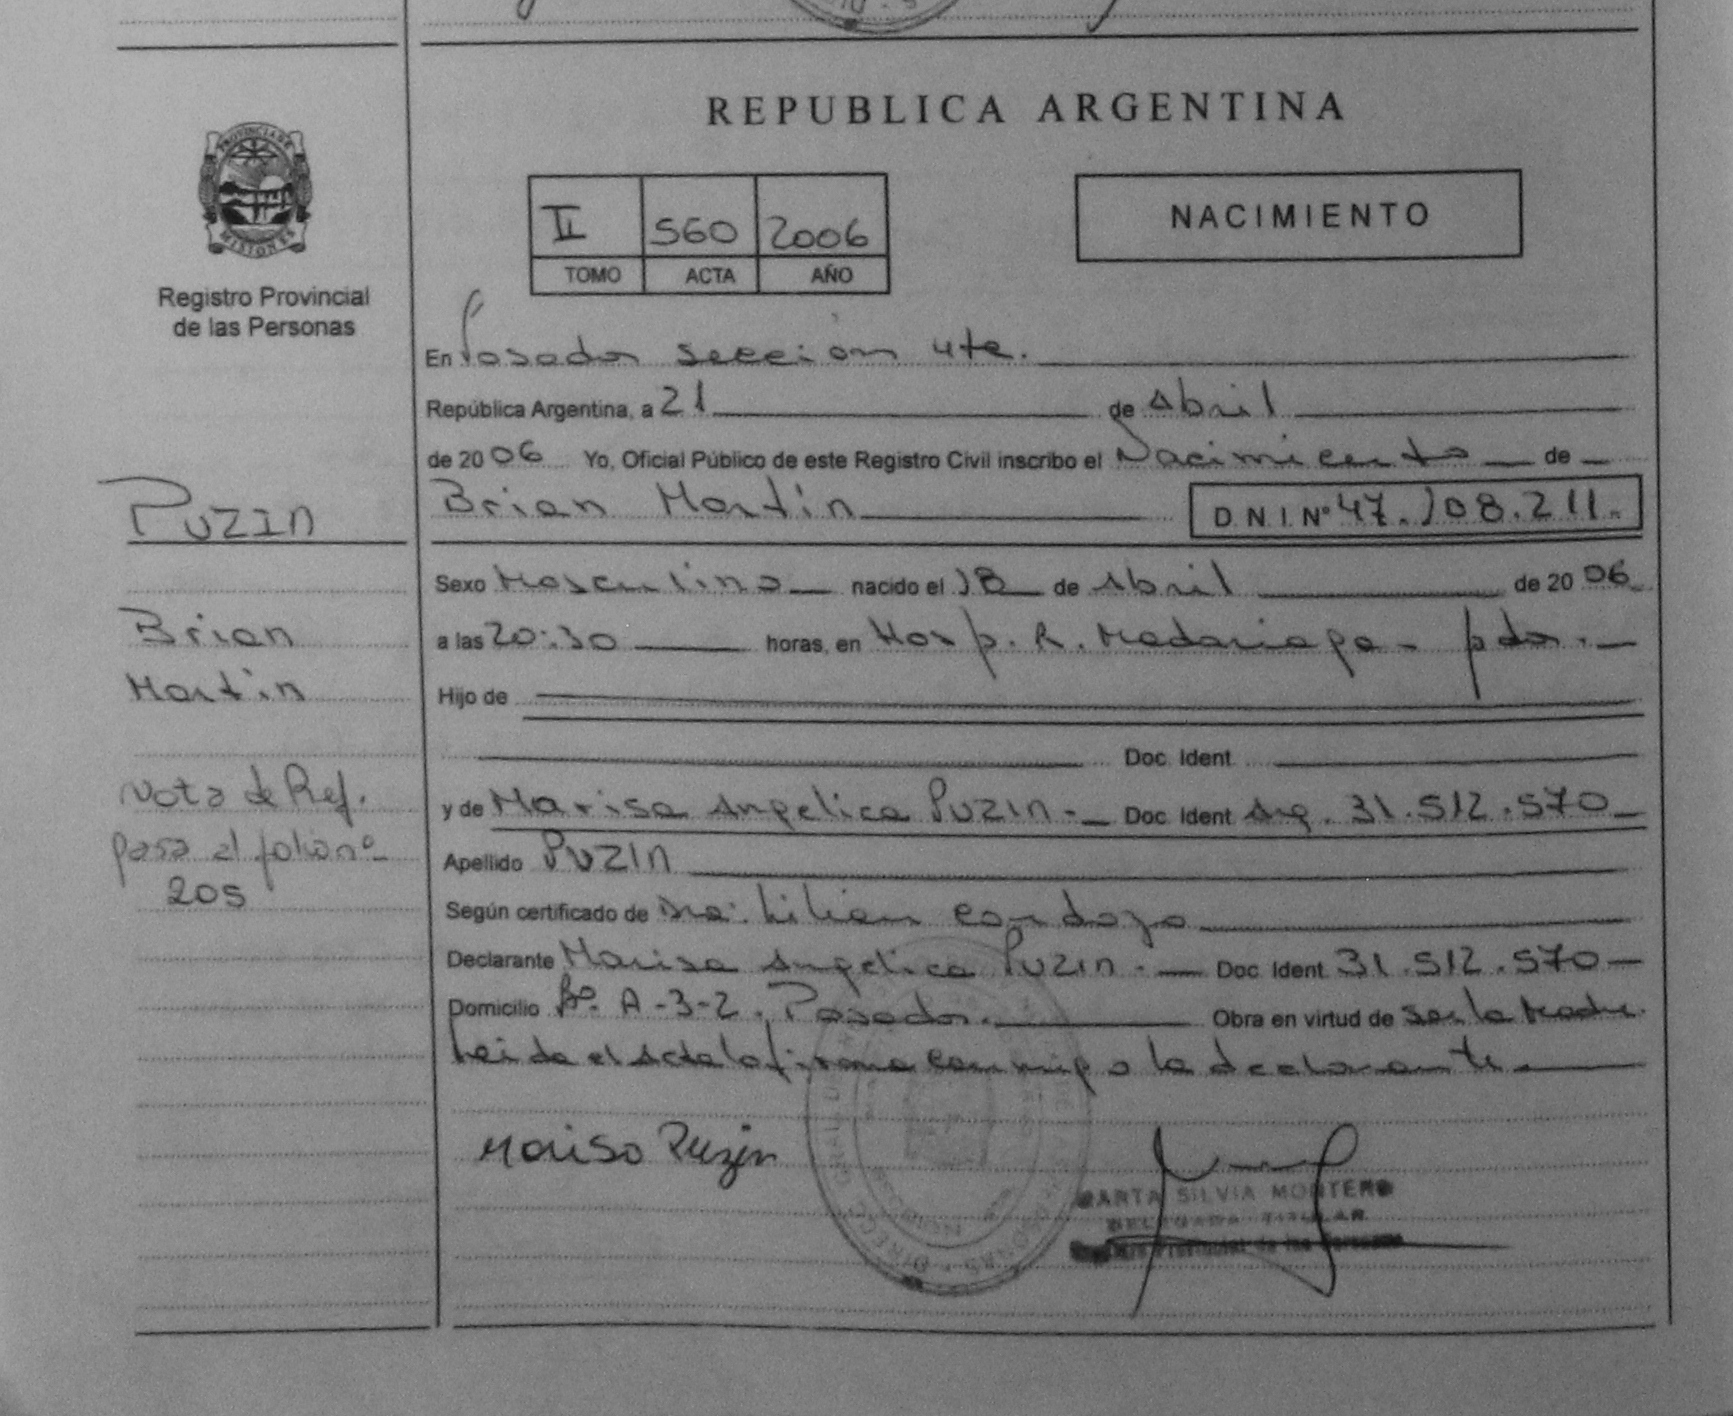 REPUBLICA ARGENTINA
PROVINCIA DE
MISIONES
Registro Provincial
de las Personas
II 560 2006
TOMO ACTA AÑO
NACIMIENTO
En Posadas sección 4ta.
República Argentina, a 21 de Abril
de 2006 Yo, Oficial Público de este Registro Civil inscribo el Nacimiento de
Brian Martín D.N.I. Nº 47.108.211.
Sexo Masculino nacido el 18 de Abril de 2006
a las 20:30 horas, en Hosp. R. Madariaga - pdas.
Hijo de
Doc. Ident.
y de Marisa Angelica PUZIN.- Doc. Ident. Arg. 31.512.570
Apellido PUZIN
Según certificado de Dra. Lilian Cardozo
Declarante Marisa Angelica PUZIN.- Doc. Ident. 31.512.570
Domicilio Bº. A-3-2. Posadas. Obra en virtud de ser la Madre.
Leida el Acta la firma conmigo la declarante.
Marisa Puzin
MARTA SILVIA MONTERO
DELEGADA TITULAR
Registro Provincial de las Personas
PUZIN
Brian
Martín
Nota de Ref.
pasa al folio nº
205